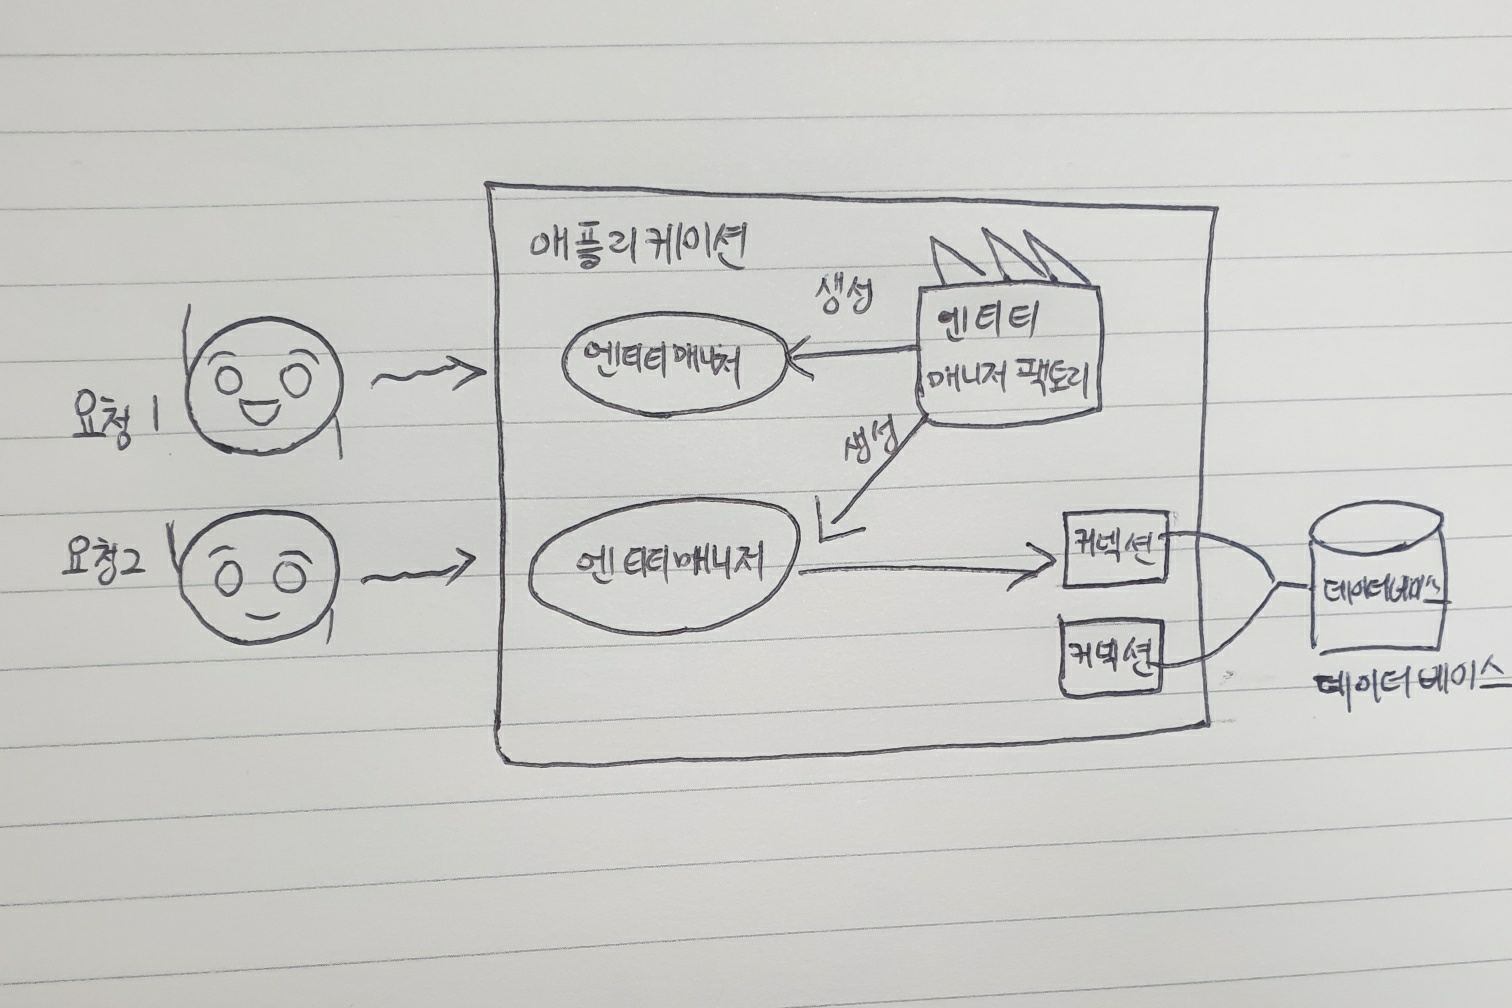 애플리케이션
생성
엔티티
매니저 팩토리
엔티티매니저
요청 1
생성
요청2
엔티티매니저
커넥션
커넥션
데이터베이스
데이터베이스